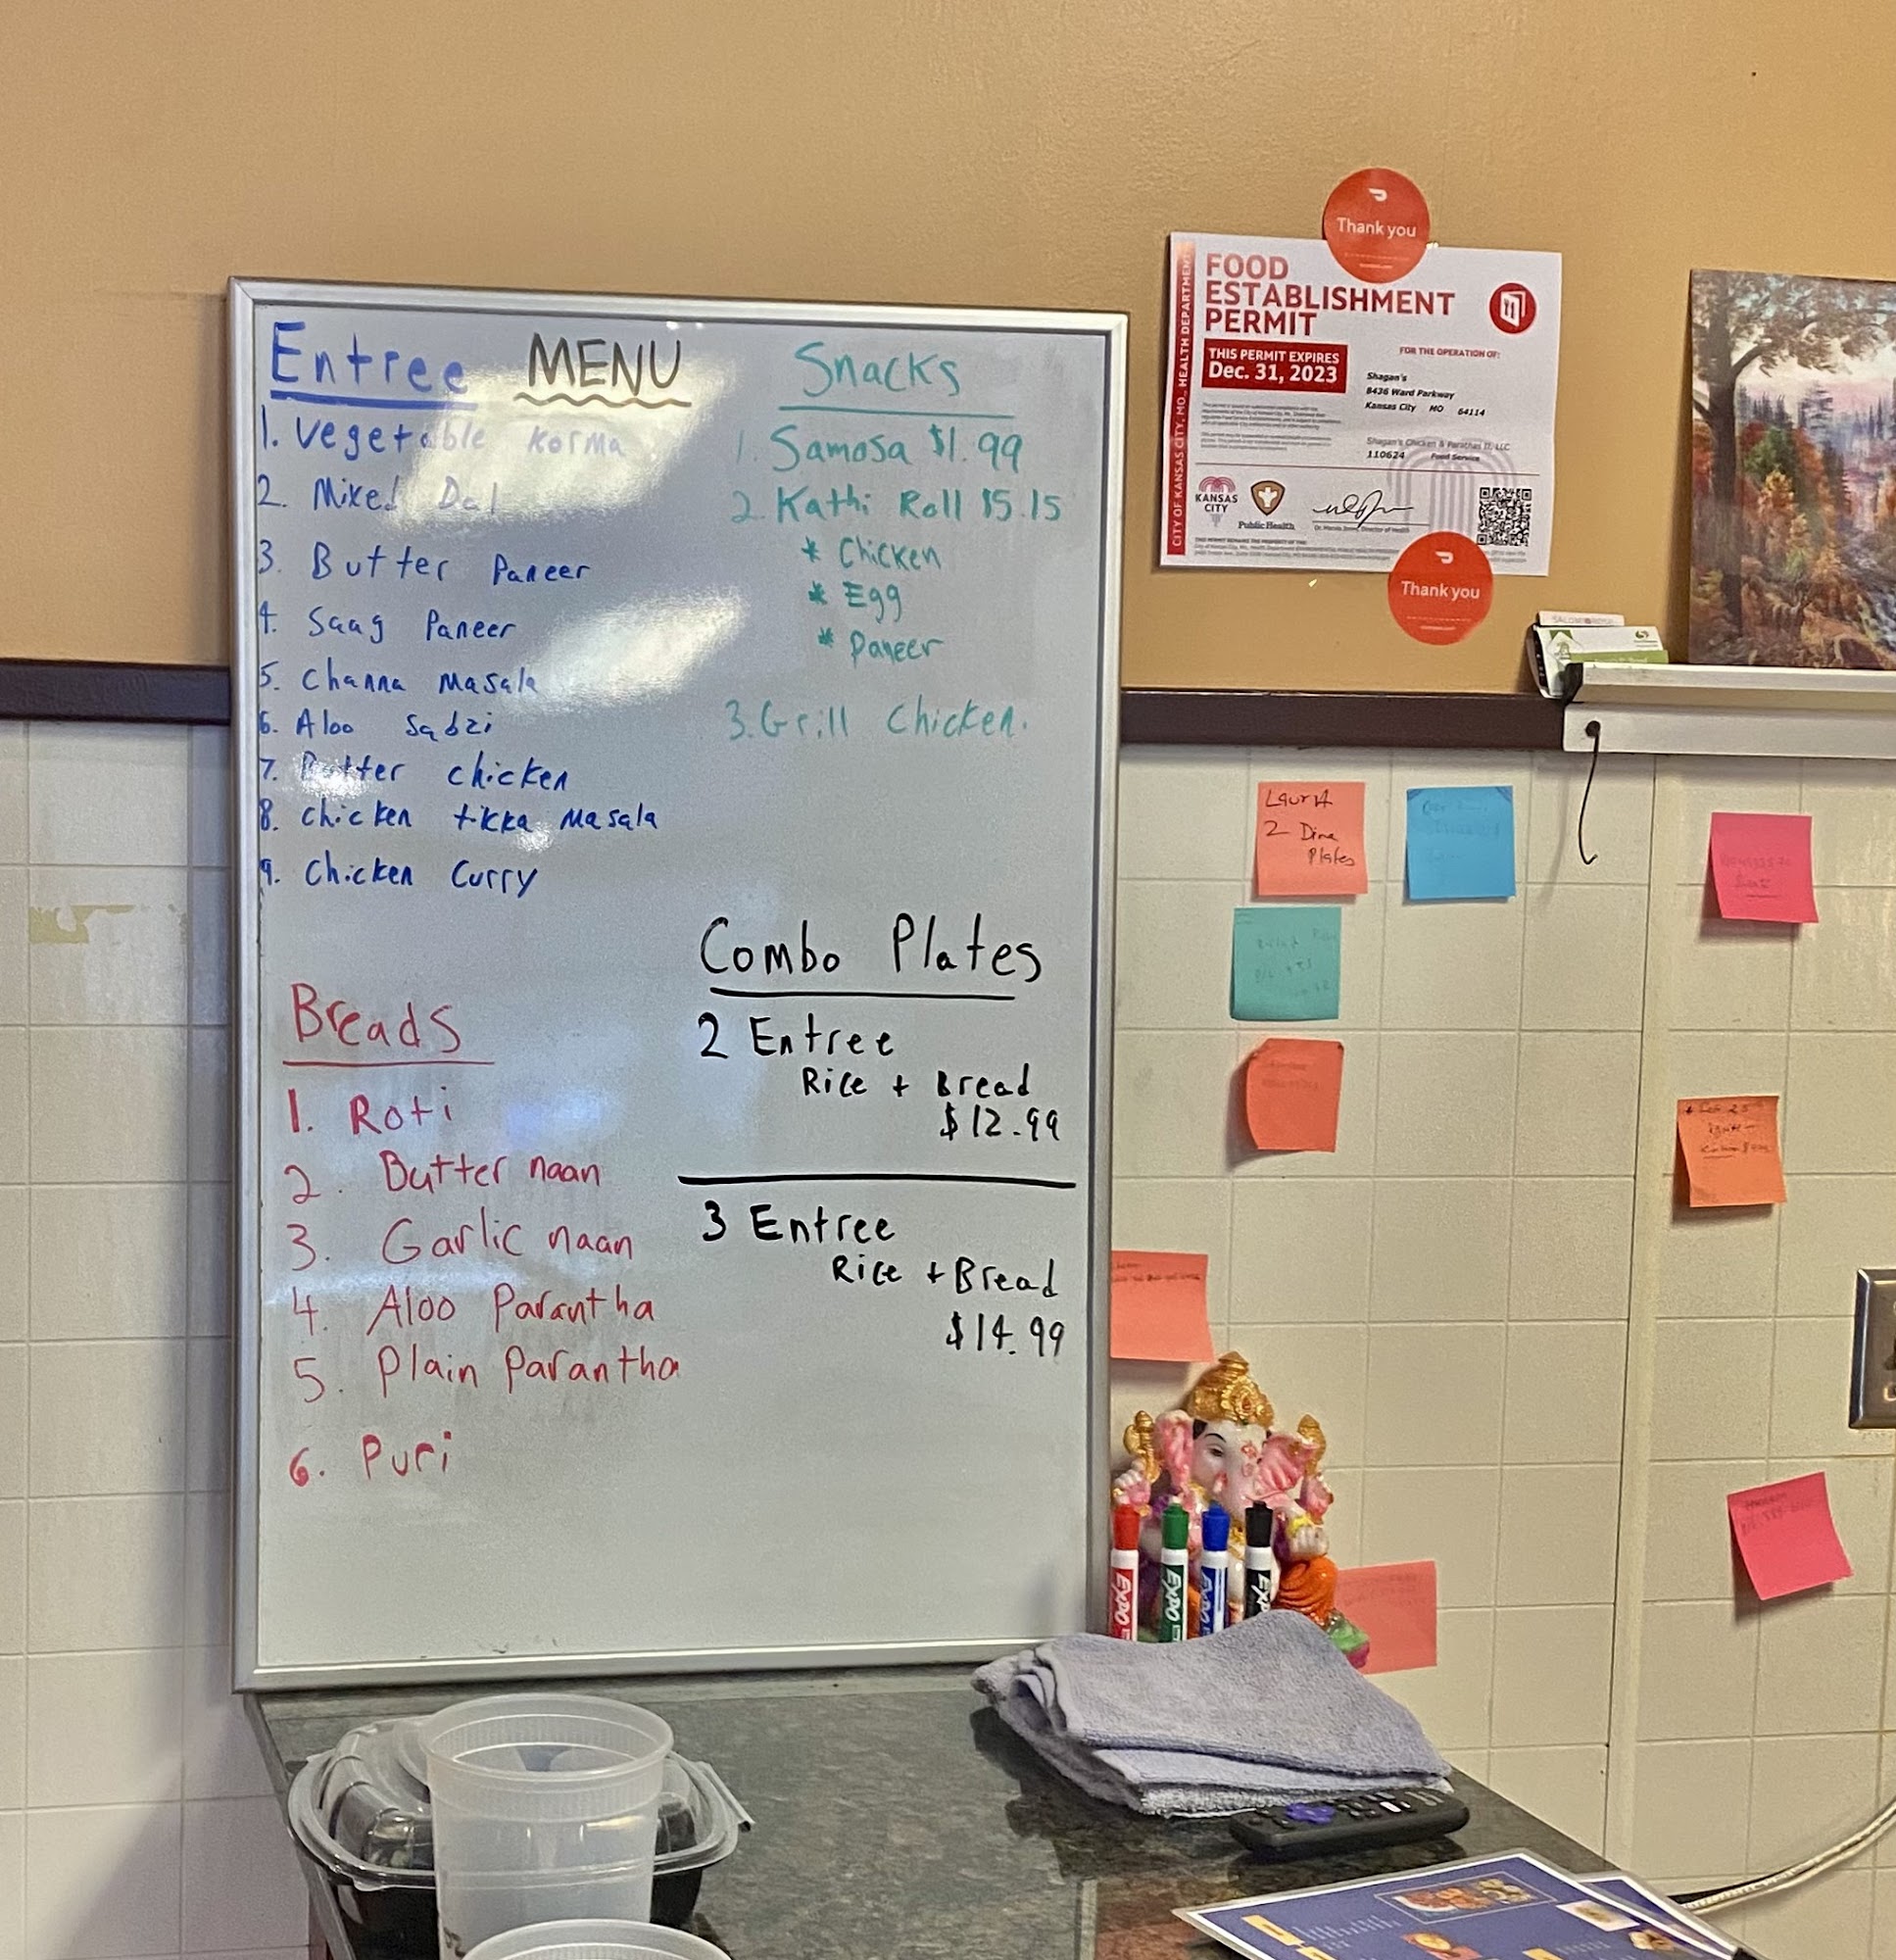 Entree
MENU
1. Vegetable Korma
2. Mixed Dal
3. Butter Paneer
4. Saag Paneer
5. Channa Masala
6. Aloo Sabzi
7. Butter chicken
8. chicken tikka Masala
9. Chicken Curry
Snacks
1. Samosa $1.99
2. Kathi Roll $5.15
* Chicken
* Egg
* Paneer
3. Grill Chicken.
Breads
1. Roti
2. Butter naan
3. Garlic naan
4. Aloo Parantha
5. Plain Parantha
6. Puri
Combo Plates
2 Entree
Rice + Bread
$12.99
3 Entree
Rice + Bread
$14.99
Thank you
CITY OF KANSAS CITY, MO., HEALTH DEPARTMENT
FOOD
ESTABLISHMENT
PERMIT
THIS PERMIT EXPIRES
Dec. 31, 2023
FOR THE OPERATION OF:
Shagan's
8436 Ward Parkway
Kansas City MO 64114
Shagan's Chicken & Parathas II, LLC
110624 Food Service
KANSAS
CITY
Public Health
Thank you
Laura
2 Dine
Plates
EXPO
EXPO
EXPO
EXPO